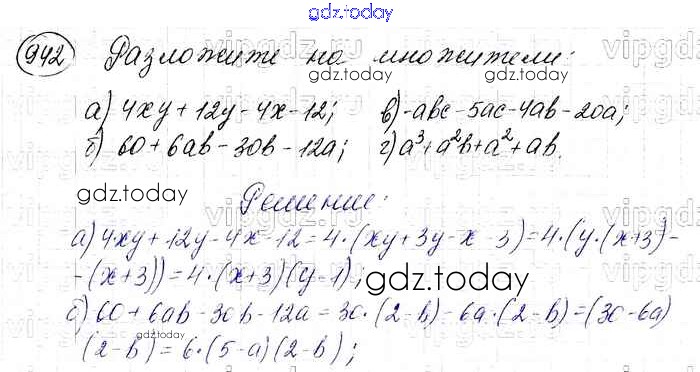 gdz.today
942 Разложите на множители:
gdz.today
gdz.today
а) 4xy + 12y - 4x - 12; в) -abc - 5ac - 4ab - 20a;
б) 60 + 6ab - 30b - 12a; г) a³ + a²b + a² + ab.
gdz.today
Решение:
а) 4xy + 12y - 4x - 12 = 4·(xy + 3y - x - 3) = 4·(y·(x+3) -
- (x+3)) = 4·(x+3)(y-1);
gdz.today
б) 60 + 6ab - 30b - 12a = 30·(2-b) - 6a·(2-b) = (30-6a)
gdz.today
(2-b) = 6·(5-a)(2-b);